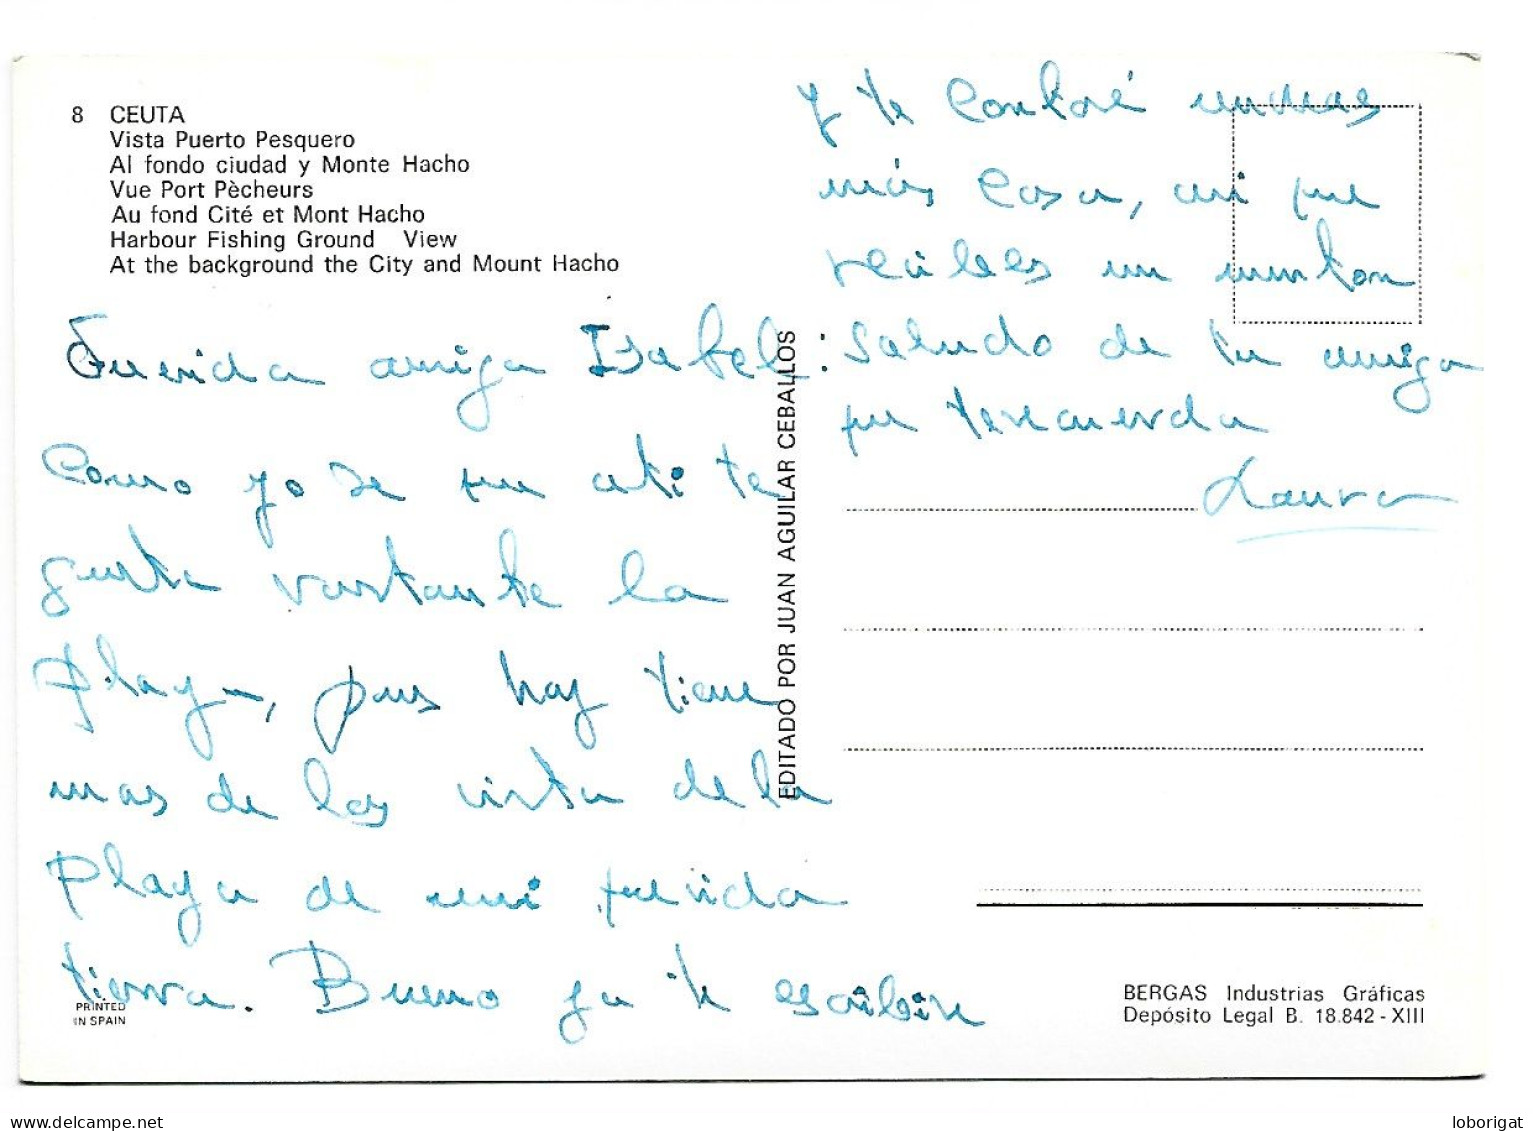 8 CEUTA
Vista Puerto Pesquero
Al fondo ciudad y Monte Hacho
Vue Port Pècheurs
Au fond Cité et Mont Hacho
Harbour Fishing Ground View
At the background the City and Mount Hacho
Querida amiga Isabel:
Como yo se que a ti te
gusta vastante la
playa, pues hay tiene
mas de las vista de la
playa de mi querida
tierra. Bueno ya te escribire
y te contaré muchas
más cosa, asi que
recibes un monton
saludo de tu amiga
que te recuerda
Laura
EDITADO POR JUAN AGUILAR CEBALLOS
PRINTED
IN SPAIN
BERGAS Industrias Gráficas
Depósito Legal B. 18.842 - XIII
loborigat